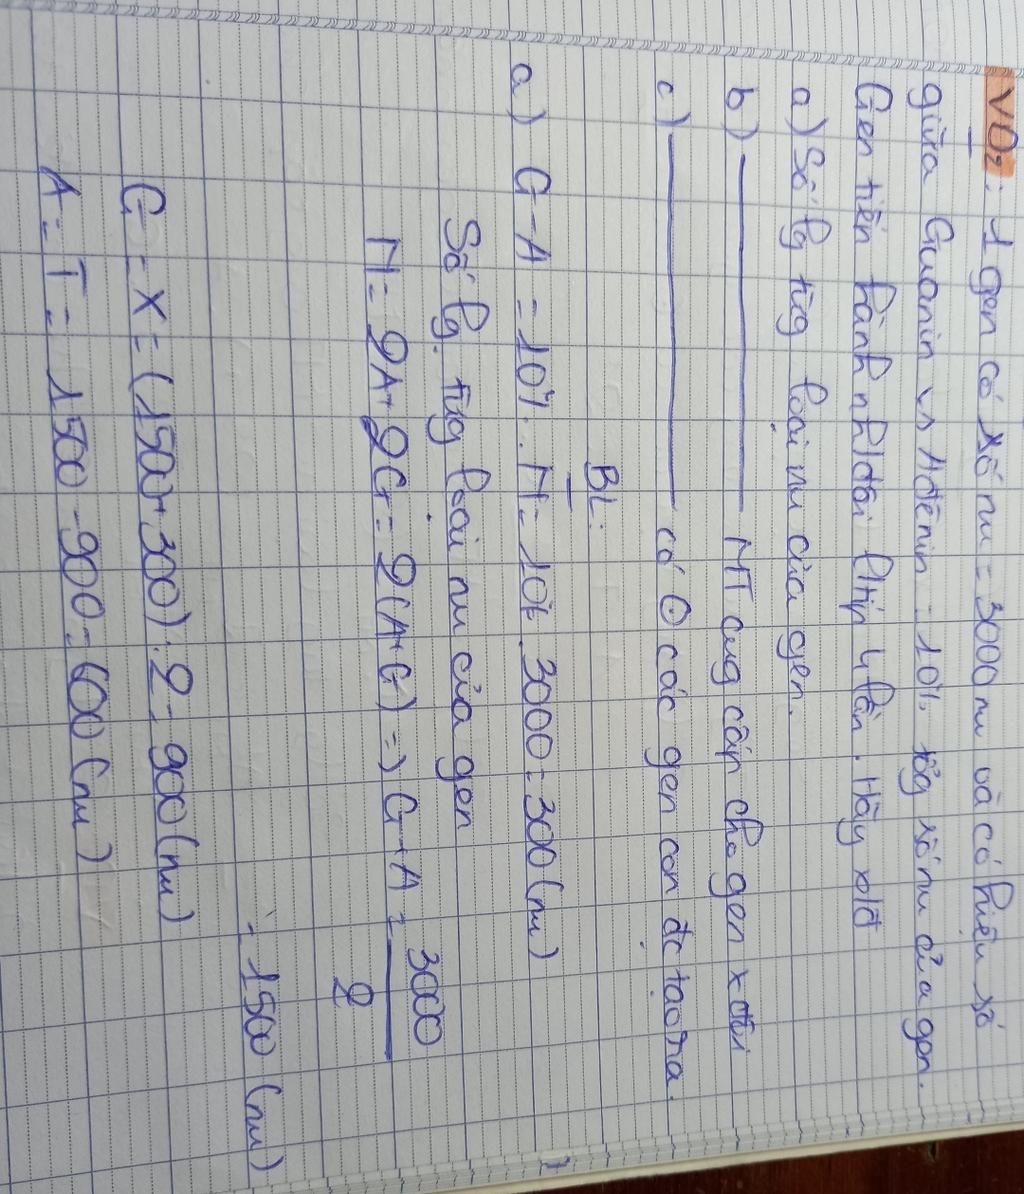 VD2: 1 gen có số nu = 3000 nu và có hiệu số
giữa Guanin vs Ađênin = 10% tổg số nu của gen.
Gen tiến hành nhđôi ltiếp 4 lần. Hãy xđ
a) Số lg từg loại nu của gen.
b) ——— MT cug cấp cho gen x đôi
c) ——— có ở các gen con đc tạo ra.
BL:
a) G - A = 10%. N = 10%. 3000 = 300 (nu)
Số lg từg loại nu của gen
N = 2A + 2G = 2(A+G) => G + A = 3000/2
= 1500 (nu)
G = X = (1500 + 300) : 2 = 900 (nu)
A = T = 1500 - 900 = 600 (nu)